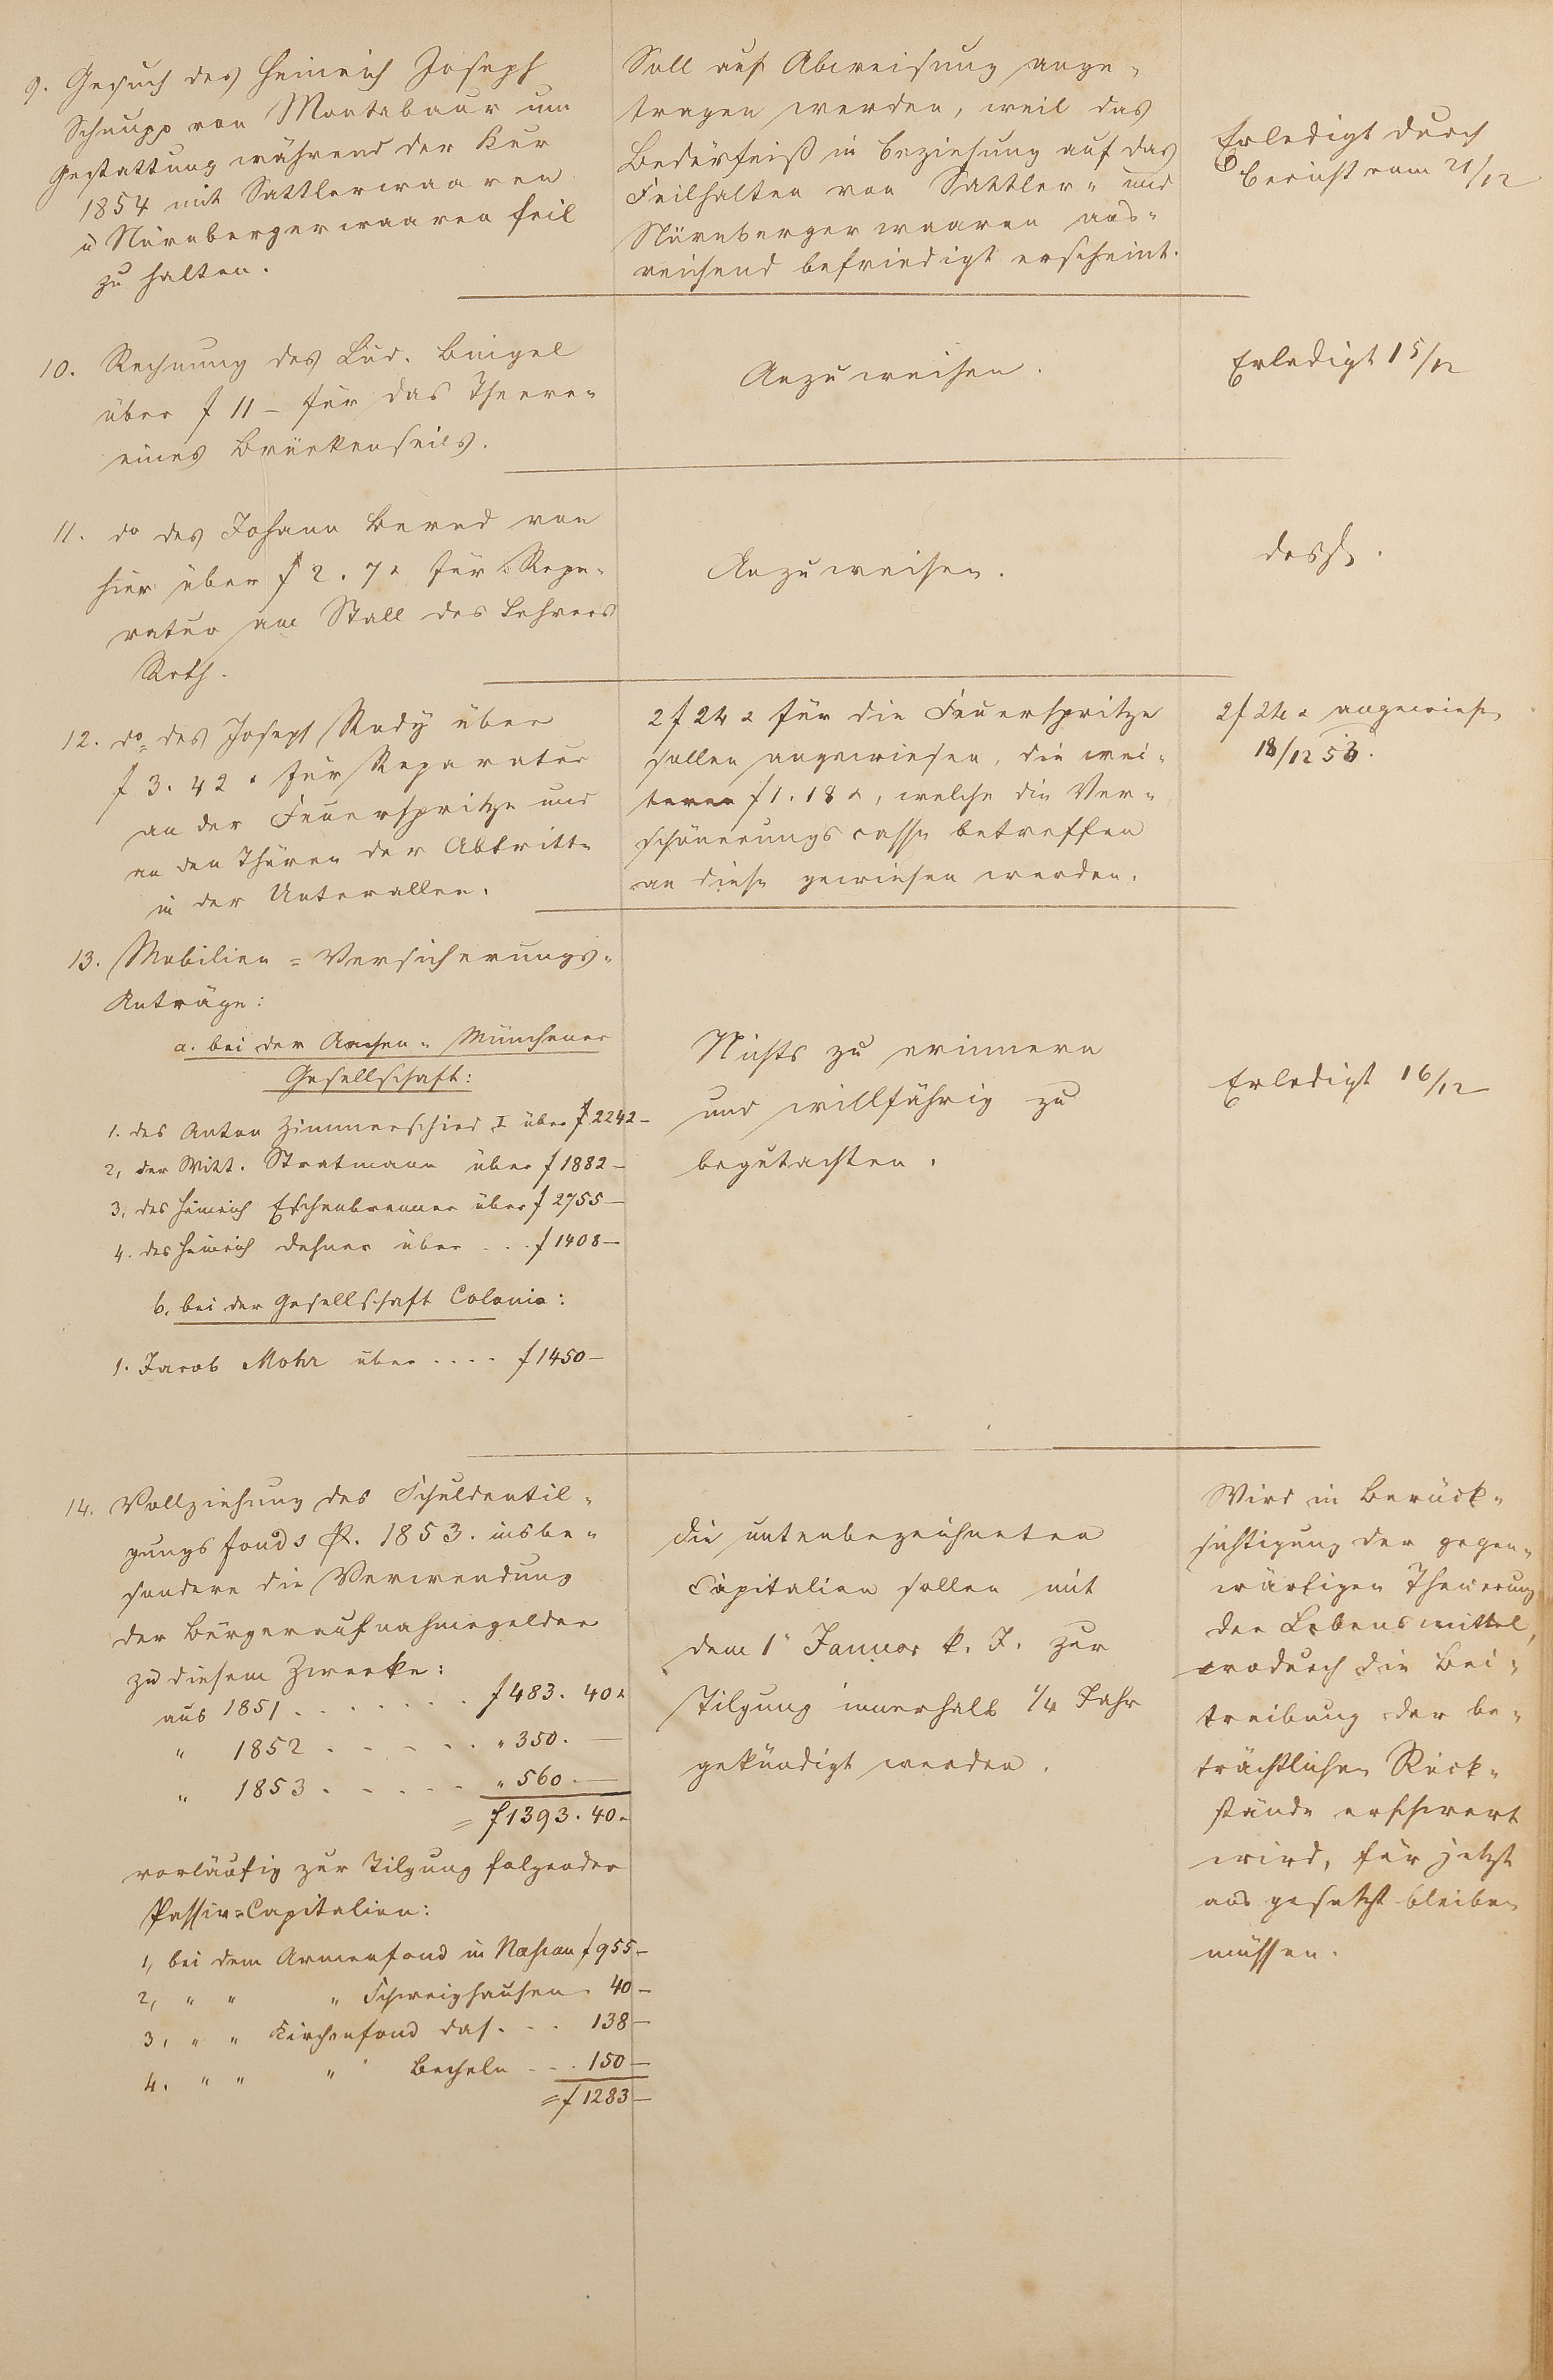 9. Gesuch des Heinrich Joseph
Schnupp von Montabaur um
Gestattung während der Kur
1854 mit Sattlerwaaren
u Nürnbergerwaaren feil
zu halten.
Soll auf Abweisung ange-
tragen werden, weil das
Bedürfniß in Beziehung auf das
Feilhalten von Sattler- und
Nürnberger waaren aus-
reichend befriedigt erscheint.
Erledigt durch
Bericht vom 21/12
10. Rechnung des Lud. Bingel
über f 11 – für das Theeren
eines Brückenseils.
Anzuweisen.
Erledigt 15/12
11. do des Johann Bernd von
hier über f 2. 7 x für Repa-
ratur am Stall des Lehrers
Roth.
Anzuweisen.
dessgl.
12. do des Joseph Rady über
f 3. 42 x für Reparatur
an der Feuerspritze und
an den Thüren der Abtritte
in der Unterallee.
2 f 24 x für die Feuerspritze
sollen angewiesen, die wei-
teren f 1. 18 x, welche die Ver-
schönerungs casse betreffen
an diese gewiesen werden.
2 f 24 x angewiesen
18/12 53.
13. Mobilien = Versicherungs-
Anträge:
a. bei der Aachen- Münchener
Gesellschaft:
1. des Anton Zimmerschied I über f 2242 –
2, der Witt. Stratmann über f 1882 –
3, des Heinrich Eschenbrenner über f 2755 –
4. des Heinrich Dehner über . . . f 1408 –
b, bei der Gesellschaft Colonia:
1. Jacob Mohr über . . . . f 1450 –
Nichts zu erinnern
und willfährig zu
begutachten.
Erledigt 16/12
14. Vollziehung des Schuldentil-
gungs fonds p. 1853. insbe-
sondere die Verwendung
der Bürgeraufnahmegelder
zu diesem Zwecke:
aus 1851 . . . . . . f 483. 40 x
" 1852 . . . . . " 350. –
" 1853 . . . . . " 560. –
= f 1393. 40 x
vorläufig zur Tilgung folgender
Passiv=Capitalien:
1, bei dem Armenfond in Nassau f 955 –
2, " " " Schweighausen . 40 –
3, " " Kirchenfond das. . . 138 –
4. " " " Becheln . . . 150 –
= f 1283 –
Die untenbezeichneten
Capitalien sollen mit
dem 1n Januar k. J. zur
Tilgung innerhalb 1/4 Jahr
gekündigt werden.
Wird in Berück-
sichtigung der gegen-
wärtigen Theuerung
der Lebensmittel,
wodurch die Bei-
treibung der be-
trächtlichen Rück-
stände erschwert
wird, für jetzt
aus gesetzt bleiben
müssen.